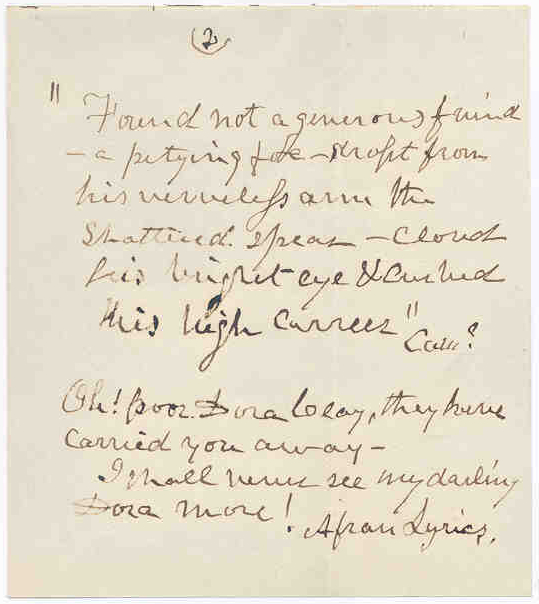 (2)
" Found not a generous friend
- a pitying foe - dropt from
his nerveless arm the
Shattered. spear - closed
his bright eye & curbed
his high career"
Cam?
Oh! poor Dora Cleay, they have
carried you away -
I shall never see my darling
Dora more!
Afran Lyrics.